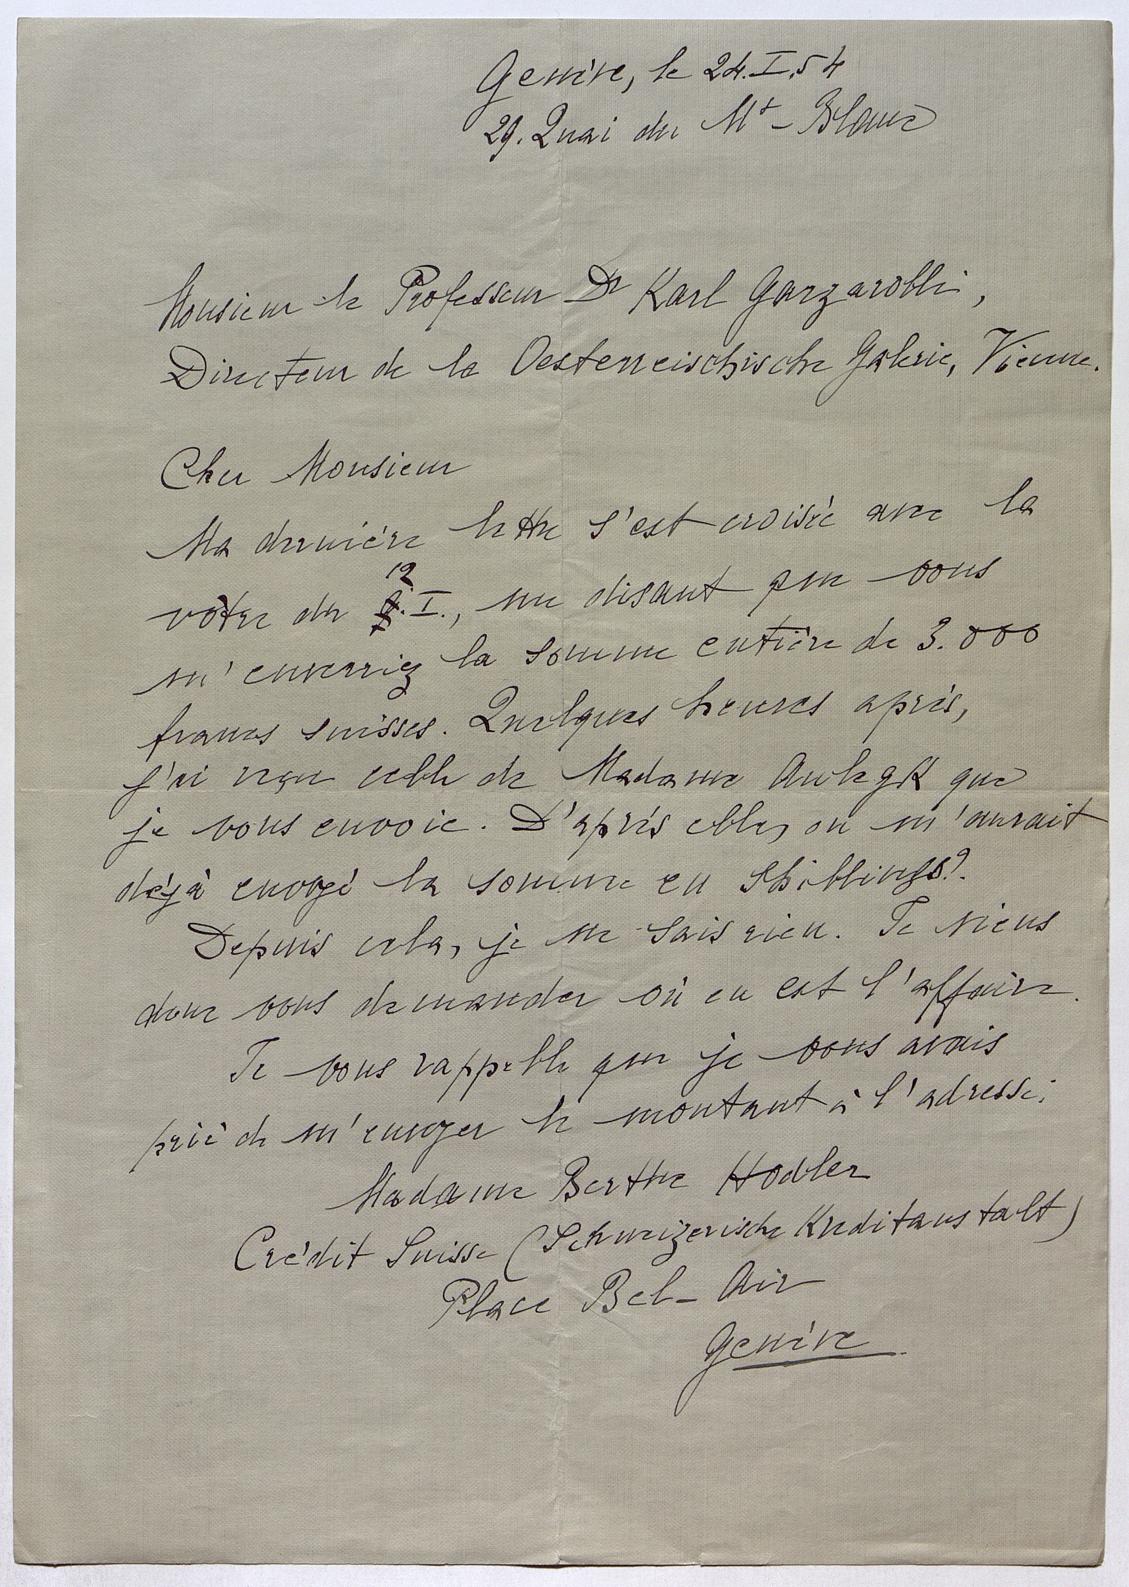 Genève, le 24.I.54
29. Quai du Mt-Blanc
Monsieur le Professeur Dr Karl Garzarolli,
Directeur de la Oesterreischische Galerie, Vienne.
Cher Monsieur
Ma dernière lettre s'est croisée avec la
vôtre du 12.I., me disant que vous
m'enverriez la somme entière de 3.000
francs suisses. Quelques heures après,
j'ai reçu celle de Madame Aulegk que
je vous envoie. D'après elle, on m'aurait
déjà envoyé la somme en Shillings?.
Depuis cela, je ne sais rien. Je viens
donc vous demander où en est l'affaire.
Je vous rappelle que je vous avais
prié de m'envoyer le montant à l'adresse:
Madame Berthe Hodler
Crédit Suisse (Schweizerische Kreditanstalt)
Place Bel-Air
Genève.